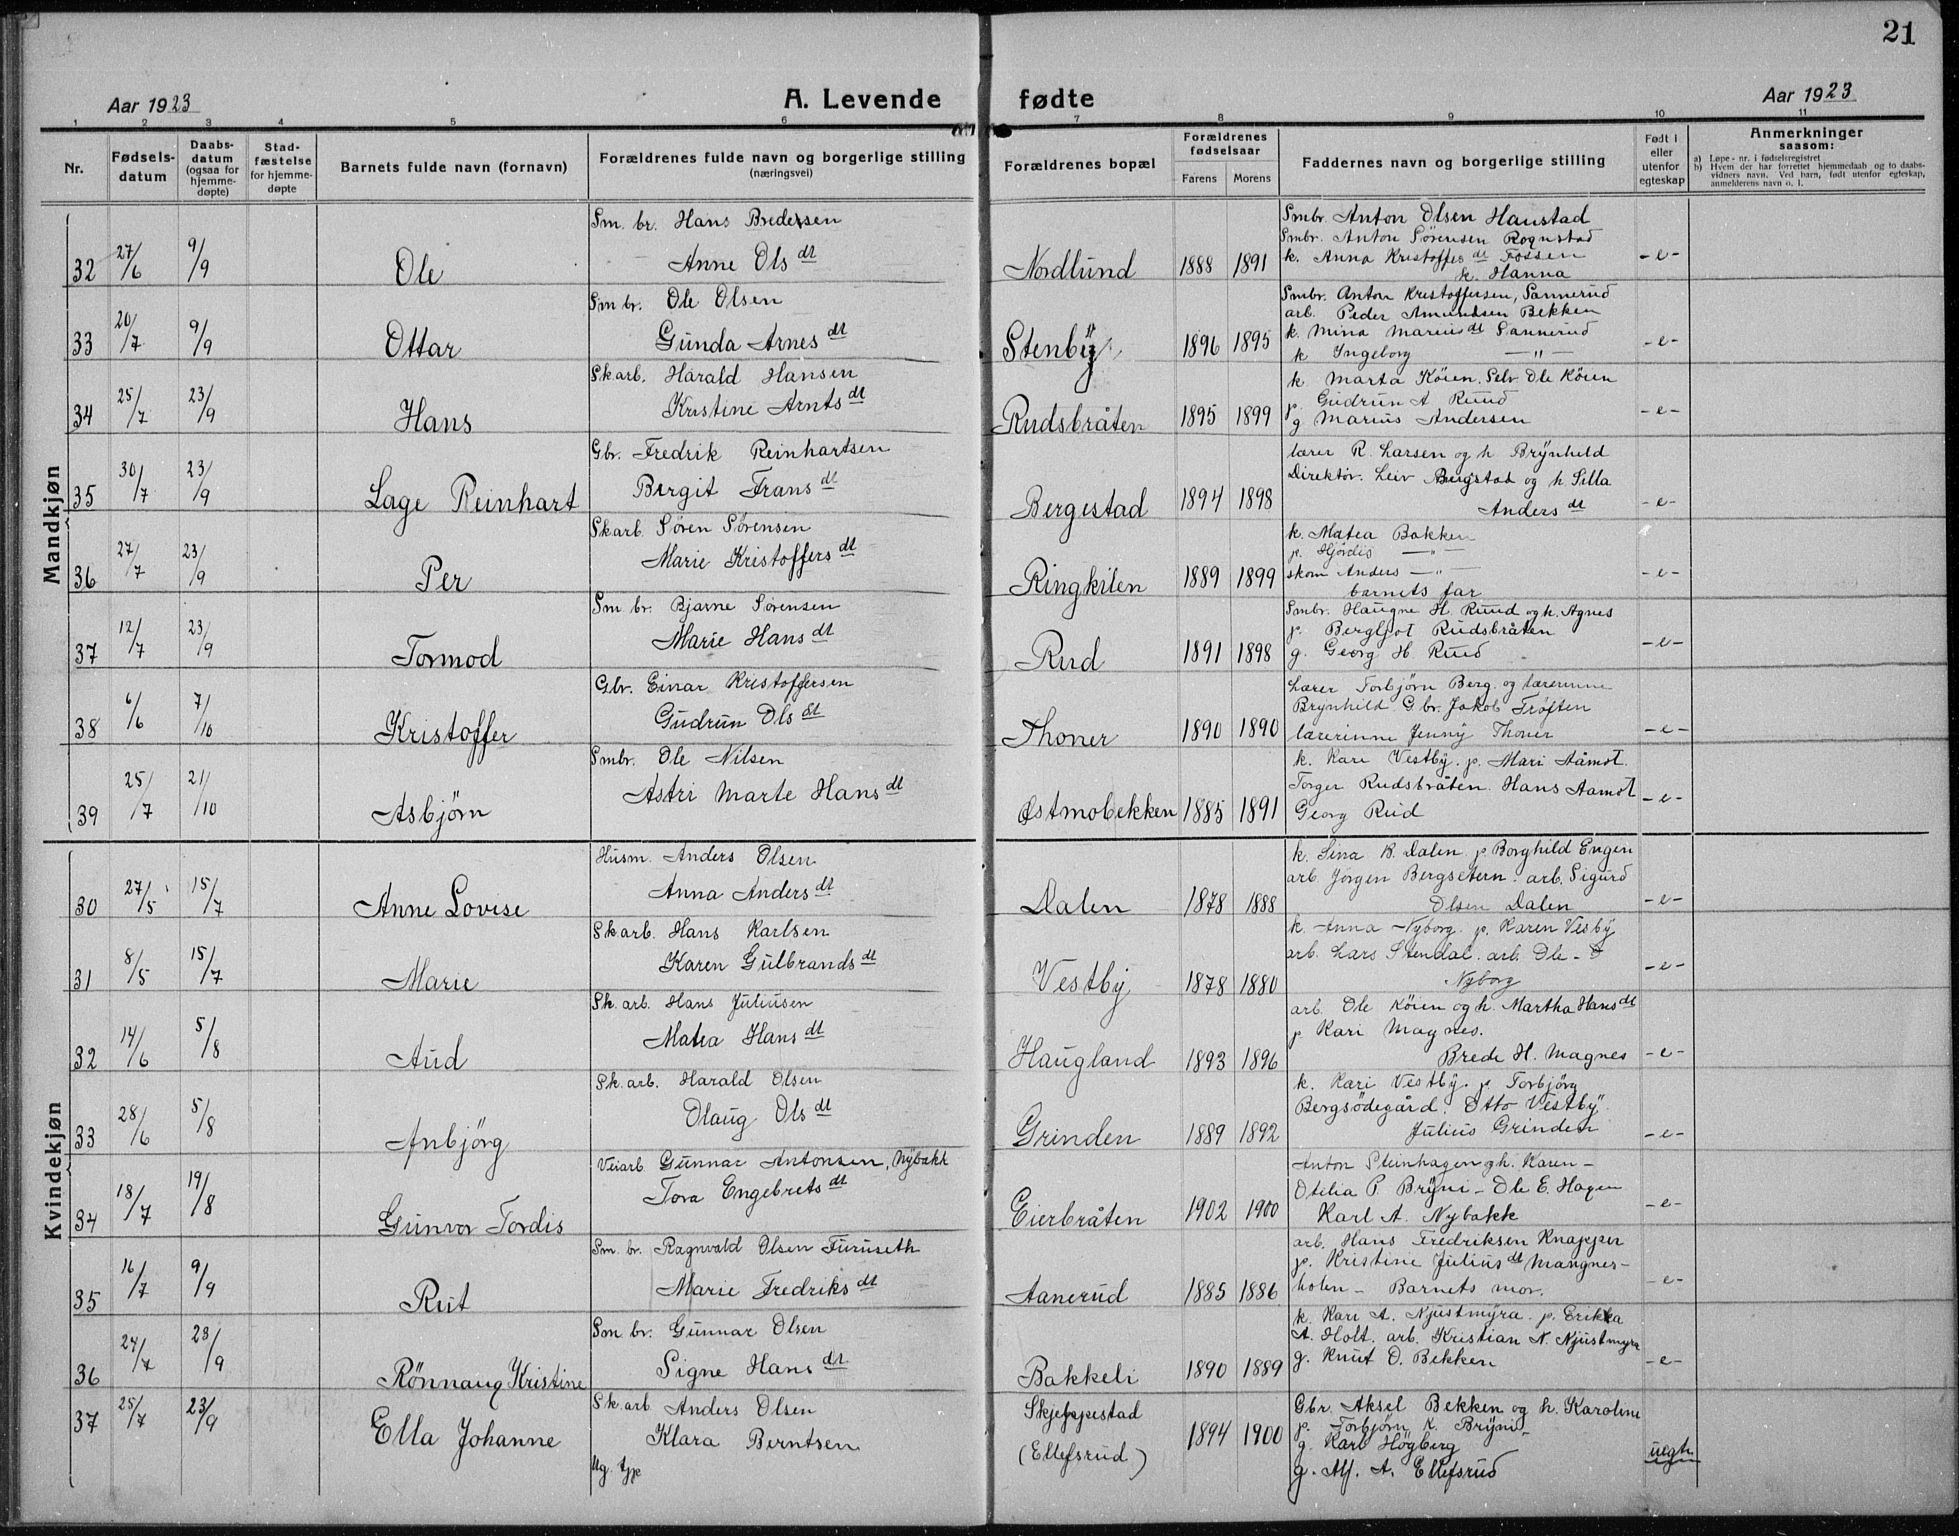 21
Aar 1923
A. Levende fødte
Aar 1923
1 2 3 4 5 6 7 8 9 10 11
Nr.
Fødsels-
datum
Daabs-
datum
(ogsaa for
hjemme-
døpte)
Stad-
fæstelse
for hjemme-
døpte
Barnets fulde navn (fornavn)
Forældrenes fulde navn og borgerlige stilling
(næringsvei)
Forældrenes bopæl
Forældrenes
fødselsaar
Farens Morens
Faddernes navn og borgerlige stilling
Født i
eller
utenfor
egteskap
Anmerkninger
saasom:
a) Løpe-nr. i fødselsregistret
b) Hvem der har forrettet hjemmedaab og to daabs-
vidners navn. Ved barn, født utenfor egteskap,
anmelderens navn o. l.
Mandkjøn
32 27/6 9/9 Ole
Sm. br. Hans Bredesen
Anne Ols dt
Nordlund 1888 1891
Smbr. Anton Olsen Haustad
Smbr. Anton Sørensen Rognstad
k. Anna Kristoffes dt Fossen
k. Hanna
-e-
33 20/7 9/9 Ottar
Sm br. Ole Olsen
Gunda Arnes dt
Stenby 1896 1895
Smbr. Anton Kristoffersen, Sannerud
arb. Peder Amundsen Bekken
k. Mina Marius dt Sannerud
k Ingeborg —"—
-e-
34 25/7 23/9 Hans
Skarb. Harald Hansen
Kristine Arnts dt
Rudsbråten 1895 1899
k Marta Köien. Selv. Ole Köien
p. Gudrun A Ruud
g Marius Andersen
-e-
35 30/7 23/9 Lage Reinhart
Gbr. Fredrik Reinhartsen
Birgit Frans dt
Bergestad 1894 1898
lærer R. Larsen og h Brynhild
Direktör. Leiv Bergstad og h Silla
Anders dt
-e-
36 27/7 23/9 Per
Skarb. Søren Sørensen
Marie Kristoffers dt
Ringkilen 1889 1899
k. Matea Bakken
p. Hjördis —"—
skom Anders —"—
barnets far
-e-
37 12/7 23/9 Tormod
Sm br. Bjarne Sørensen
Marie Hans dt
Rud 1891 1898
Smbr. Haugne H. Ruud og h. Agnes
p. Bergljot Rudsbråten
g. Georg H. Ruud
-e-
38 6/6 7/10 Kristoffer
Gbr. Einar Kristoffersen
Gudrun Ols dt
Thoner 1890 1890
Lærer Torbjörn Berg. og lærerinne
Brynhild Gbr. Jakob Tröften
lærerinne Jenny Thoner
-e-
39 25/7 21/10 Asbjörn
Smbr. Ole Nilsen
Astri Marte Hans dt
Østmobekken 1885 1891
k. Kari Vestby. p. Mari Aamot.
Torger Rudsbråten. Hans Aamot
Georg Rud
-e-
Kvindekjøn
30 27/5 15/7 Anne Lovise
Husm. Anders Olsen
Anna Anders dt
Dalen 1878 1888
k. Sina K. Dalen p. Borghild Engen
arb. Jörgen Bergsetern. arb. Sigurd
Olsen Dalen
-e-
31 8/5 15/7 Marie
Skarb. Hans Karlsen
Karen Gulbrands dt
Vestby 1878 1880
k. Anna Nyborg. p. Karen Vesby
arb. Lars Stendal. arb. Ole
Nyborg
-e-
32 14/6 5/8 Aud
Sk. arb. Hans Juliusen
Matea Hans dt
Haugland 1893 1896
arb. Ole Köien og h. Martha Hans dt
p. Kari Magnes.
Brede H. Magnes
-e-
33 28/6 5/8 Anbjörg
Sk. arb. Harald Olsen
Olaug Ols dt
Grinden 1889 1892
k. Kari Vestby. p Torbjörg
Bergsödegård. Otto Vestby.
Julius Grinden
-e-
34 18/7 19/8 Gunvor Tordis
Veiarb Gunnar Antonsen, Nybakk
Tora Engebrets dt
Eierbråten 1902 1900
Anton Steinhagen og h. Karen -
Otilia P. Bryni - Ole E. Hagen
Karl A. Nybakk
-e-
35 16/7 9/9 Rut
Sm. br. Ragnvald Olsen Furuseth
Marie Fredriks dt
Aanerud 1885 1886
arb. Hans Fredriksen Knapper
p. Kristine Julius dt Mangnes-
holen - Barnets mor.
-e-
36 24/7 23/9 Rönnaug Kristine
Sm br. Gunnar Olsen
Signe Hans dt
Bakkeli 1890 1889
k. Kari A. Njustmyra. p. Erikka
A. Holt. arb. Kristian N. Njustmyra
g. Knut O. Bekken
-e-
37 25/7 23/9 Ella Johanne
Sk. arb Anders Olsen
Klara Berntsen
Ug. tje
Skjeppestad
(Ellefsrud)
1894 1900
Gbr. Aksel Bekken og h. Karoline
p. Torbjörn K. Bryni
g. Karl Högberg
g. Alf. A. Ellefsrud
uegte